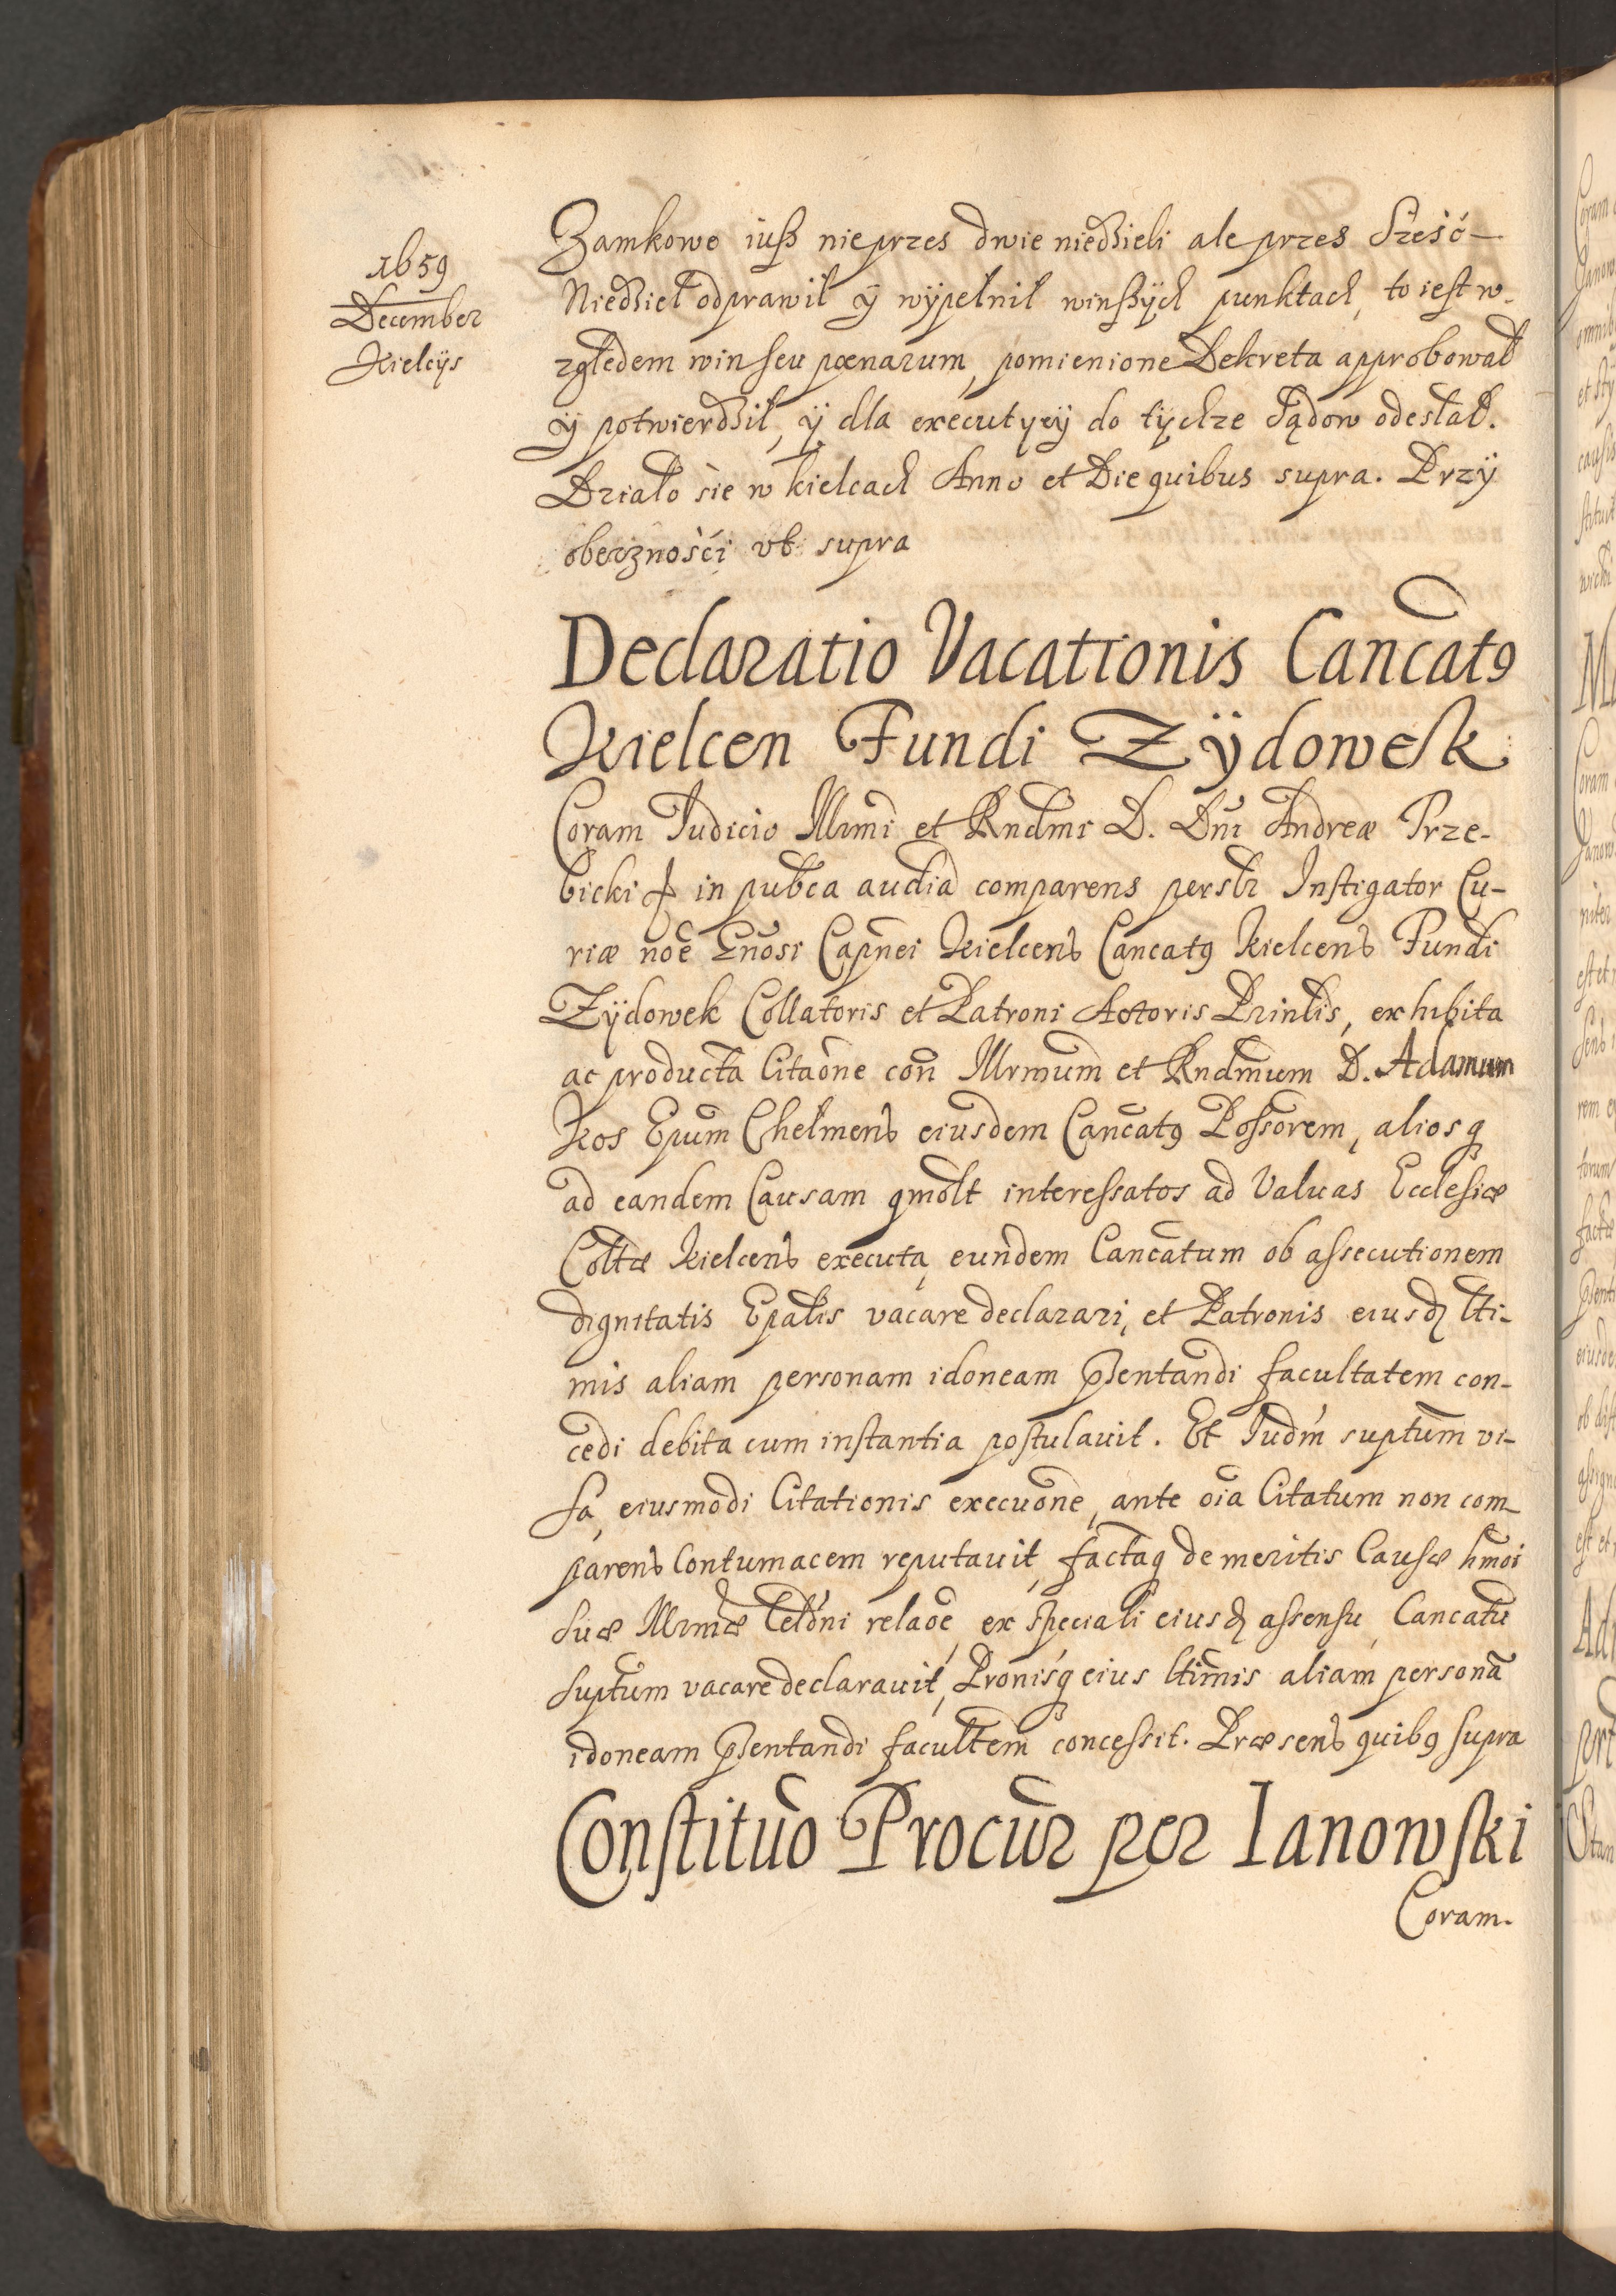 1659
December
Kielcÿs
Zamkowe iuß nie przes dwie niedzieli ale przes Sześć
Niedziel odprawił ÿ wÿpełnił winßÿch punktach, to iest w-
zględem win seu pœnarum, pomienione Dekreta approbował
ÿ potwierdził, ÿ dla executyeÿ do tÿchze Sądow odesłał.
Działo sie w kielcach Anno et Die quibus supra. Przÿ
obecznośći vt supra
Declaratio Vacationis Cancat9
Kielcen Fundi Zÿdowesk
Coram Iudicio Illrmi et Rndmi D. Dni Andreæ Prze-
bicki in pubca audia comparens persłr Instigator Cu-
riæ noe Gnosi Capnei Kielcens Cancat9 kielcens Fundi
Zÿdowek Collatoris et Patroni Actoris Prinlis, exhibita
ac producta Citaone con Illrmum et Rndmum D. Adamum
Kos Epum Chelmens eiusdem Cancat9 Possorem, aliosq
ad eandem Causam qmolt interessatos ad Valuas Ecclesiæ
Coltæ kielcens executa, eundem Cancatum ob assecutionem
dignitatis Epalis vacare declarari, et Patronis eiusd lti-
mis aliam personam idoneam psentandi facultatem con-
cedi debita cum instantia postulauit. Et Iudm suptum vi-
sa, eiusmodi Citationis execuone, ante oia Citatum non com-
parens Contumacem reputauit, factaq de meritis Causæ hmoi
Suæ Illrmæ Celdni relaoe, ex speciali eiusd assensu, Cancatu
suptum vacare declarauit, Pronisq eius ltimis aliam persona
idoneam psentandi facultem concessit. Præsens quib9 supra
Constituo Procur per Ianowski
Coram.